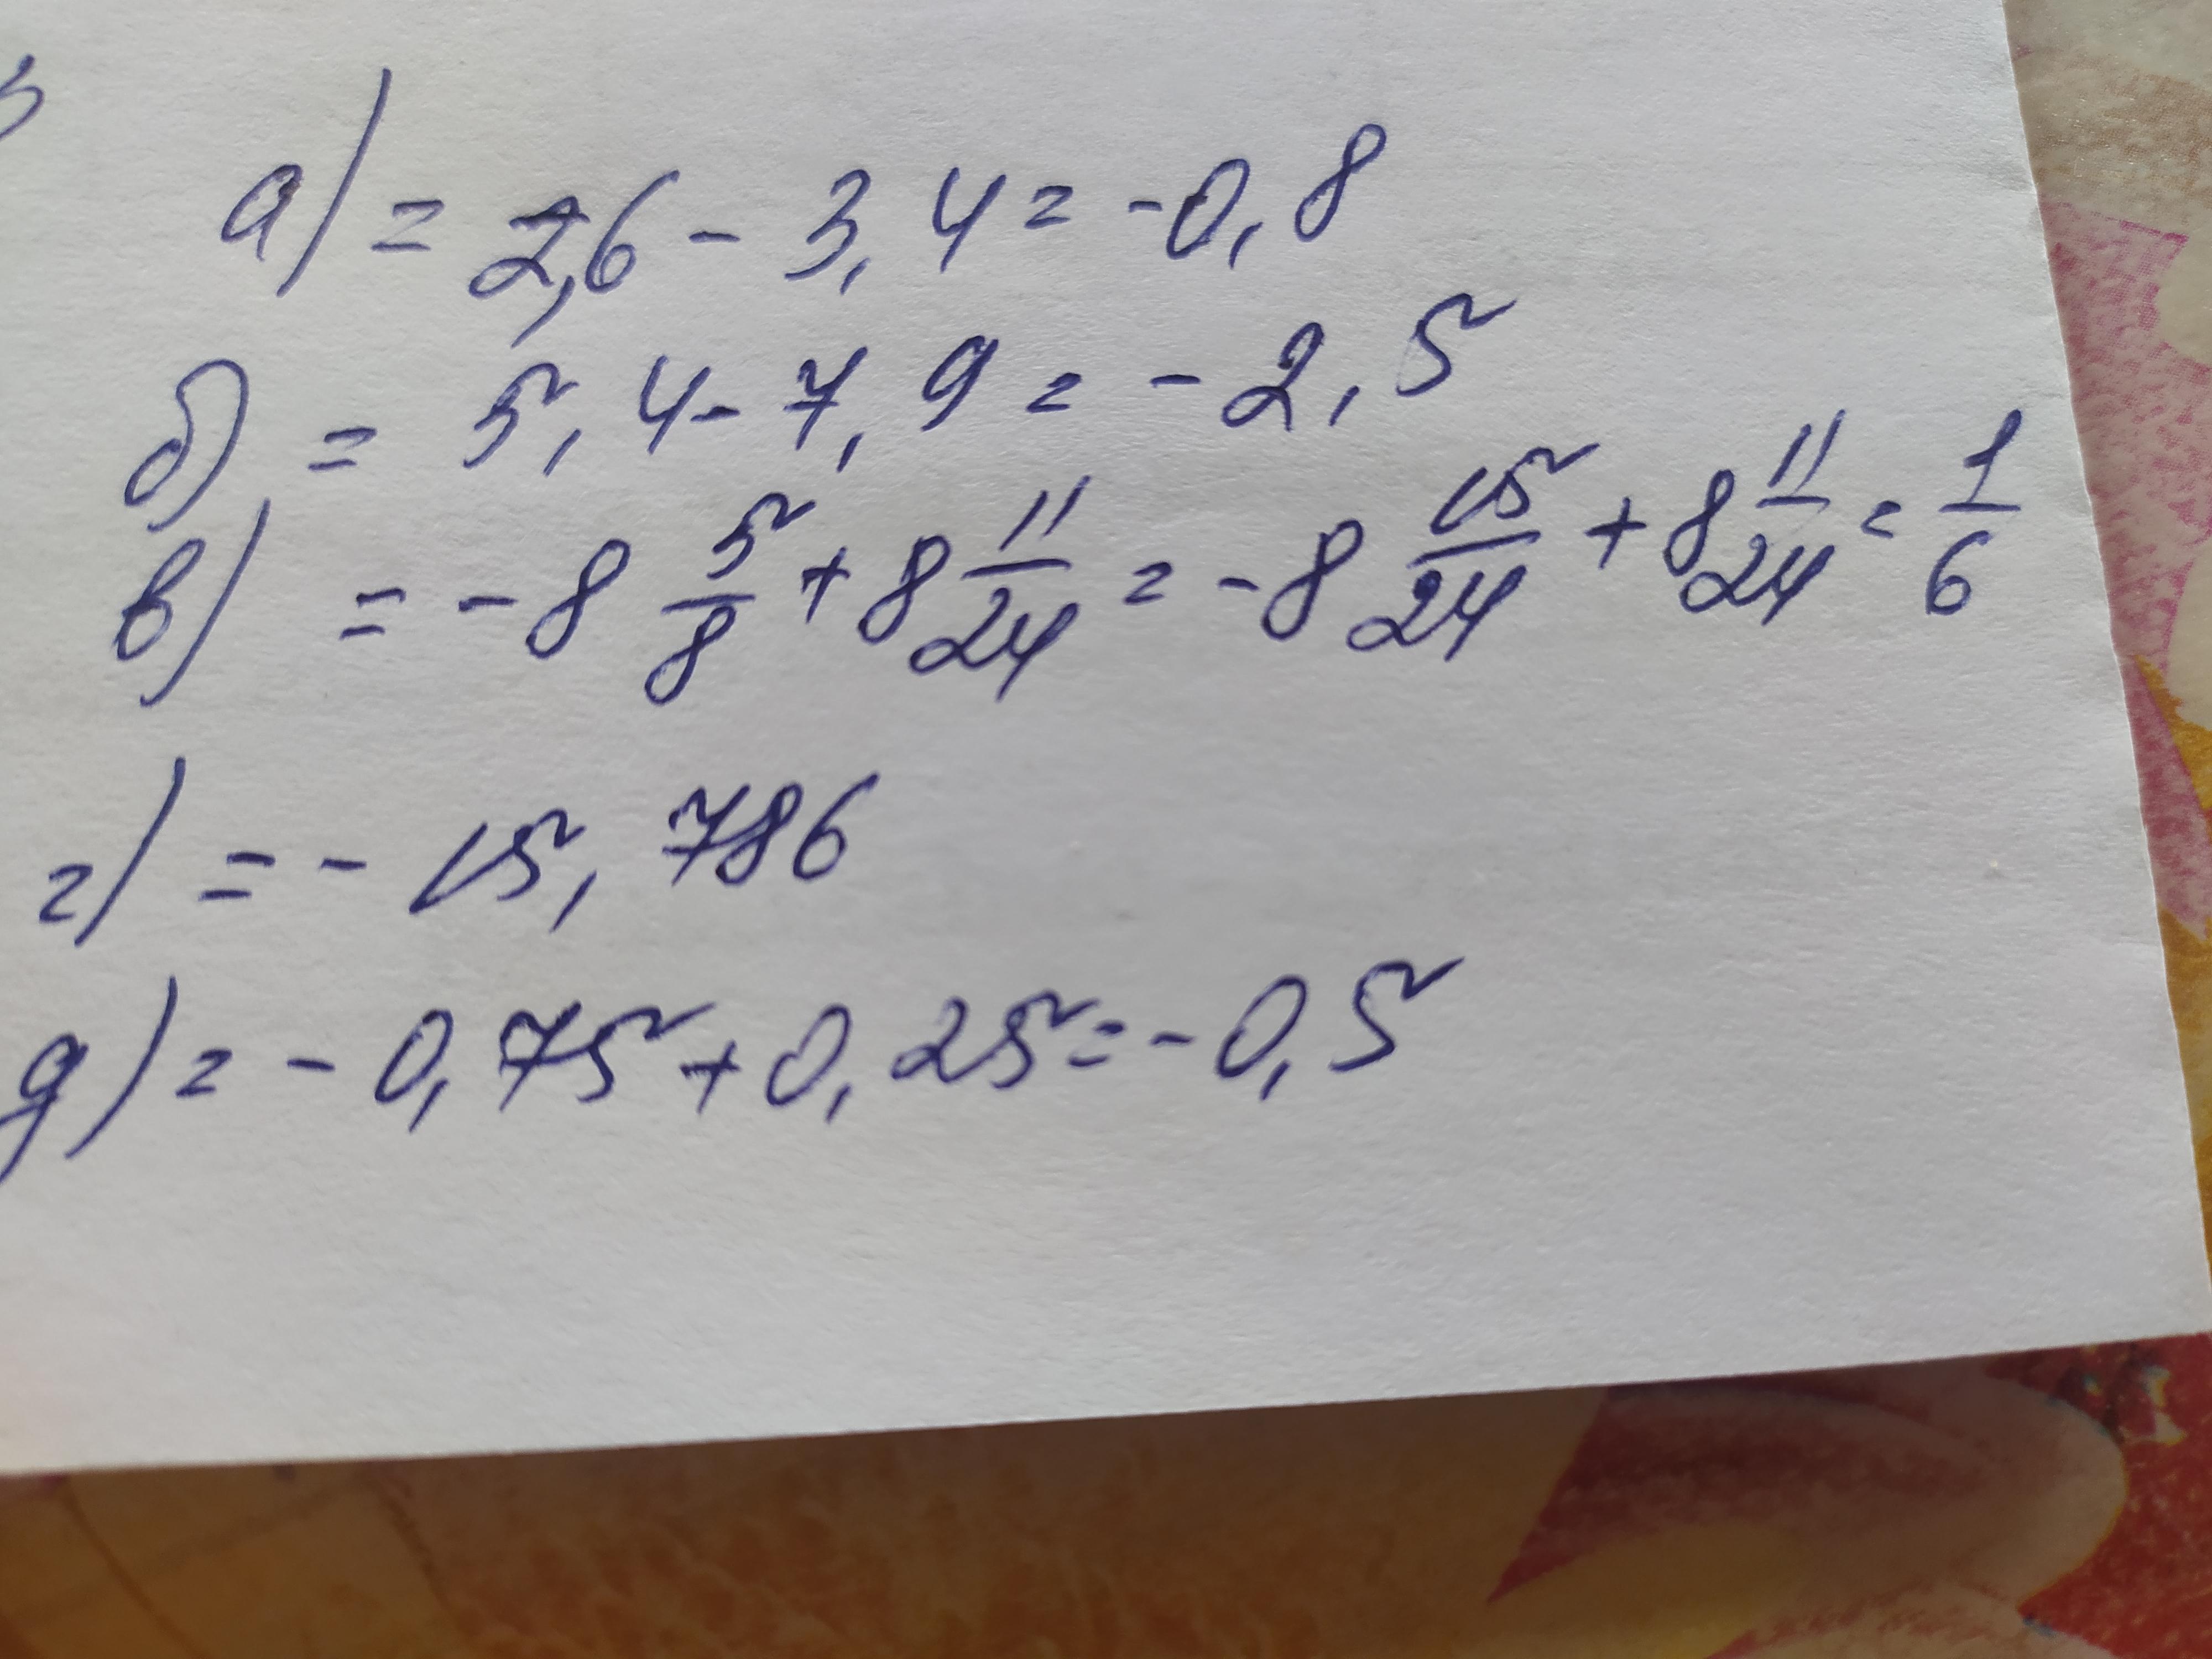 а) = 2,6 - 3,4 = -0,8
б) = 5,4 - 7,9 = -2,5
в) = -8 5/8 + 8 11/24 = -8 15/24 + 8 11/24 = 1/6
г) = - 15,786
д) = - 0,75 + 0,25 = -0,5